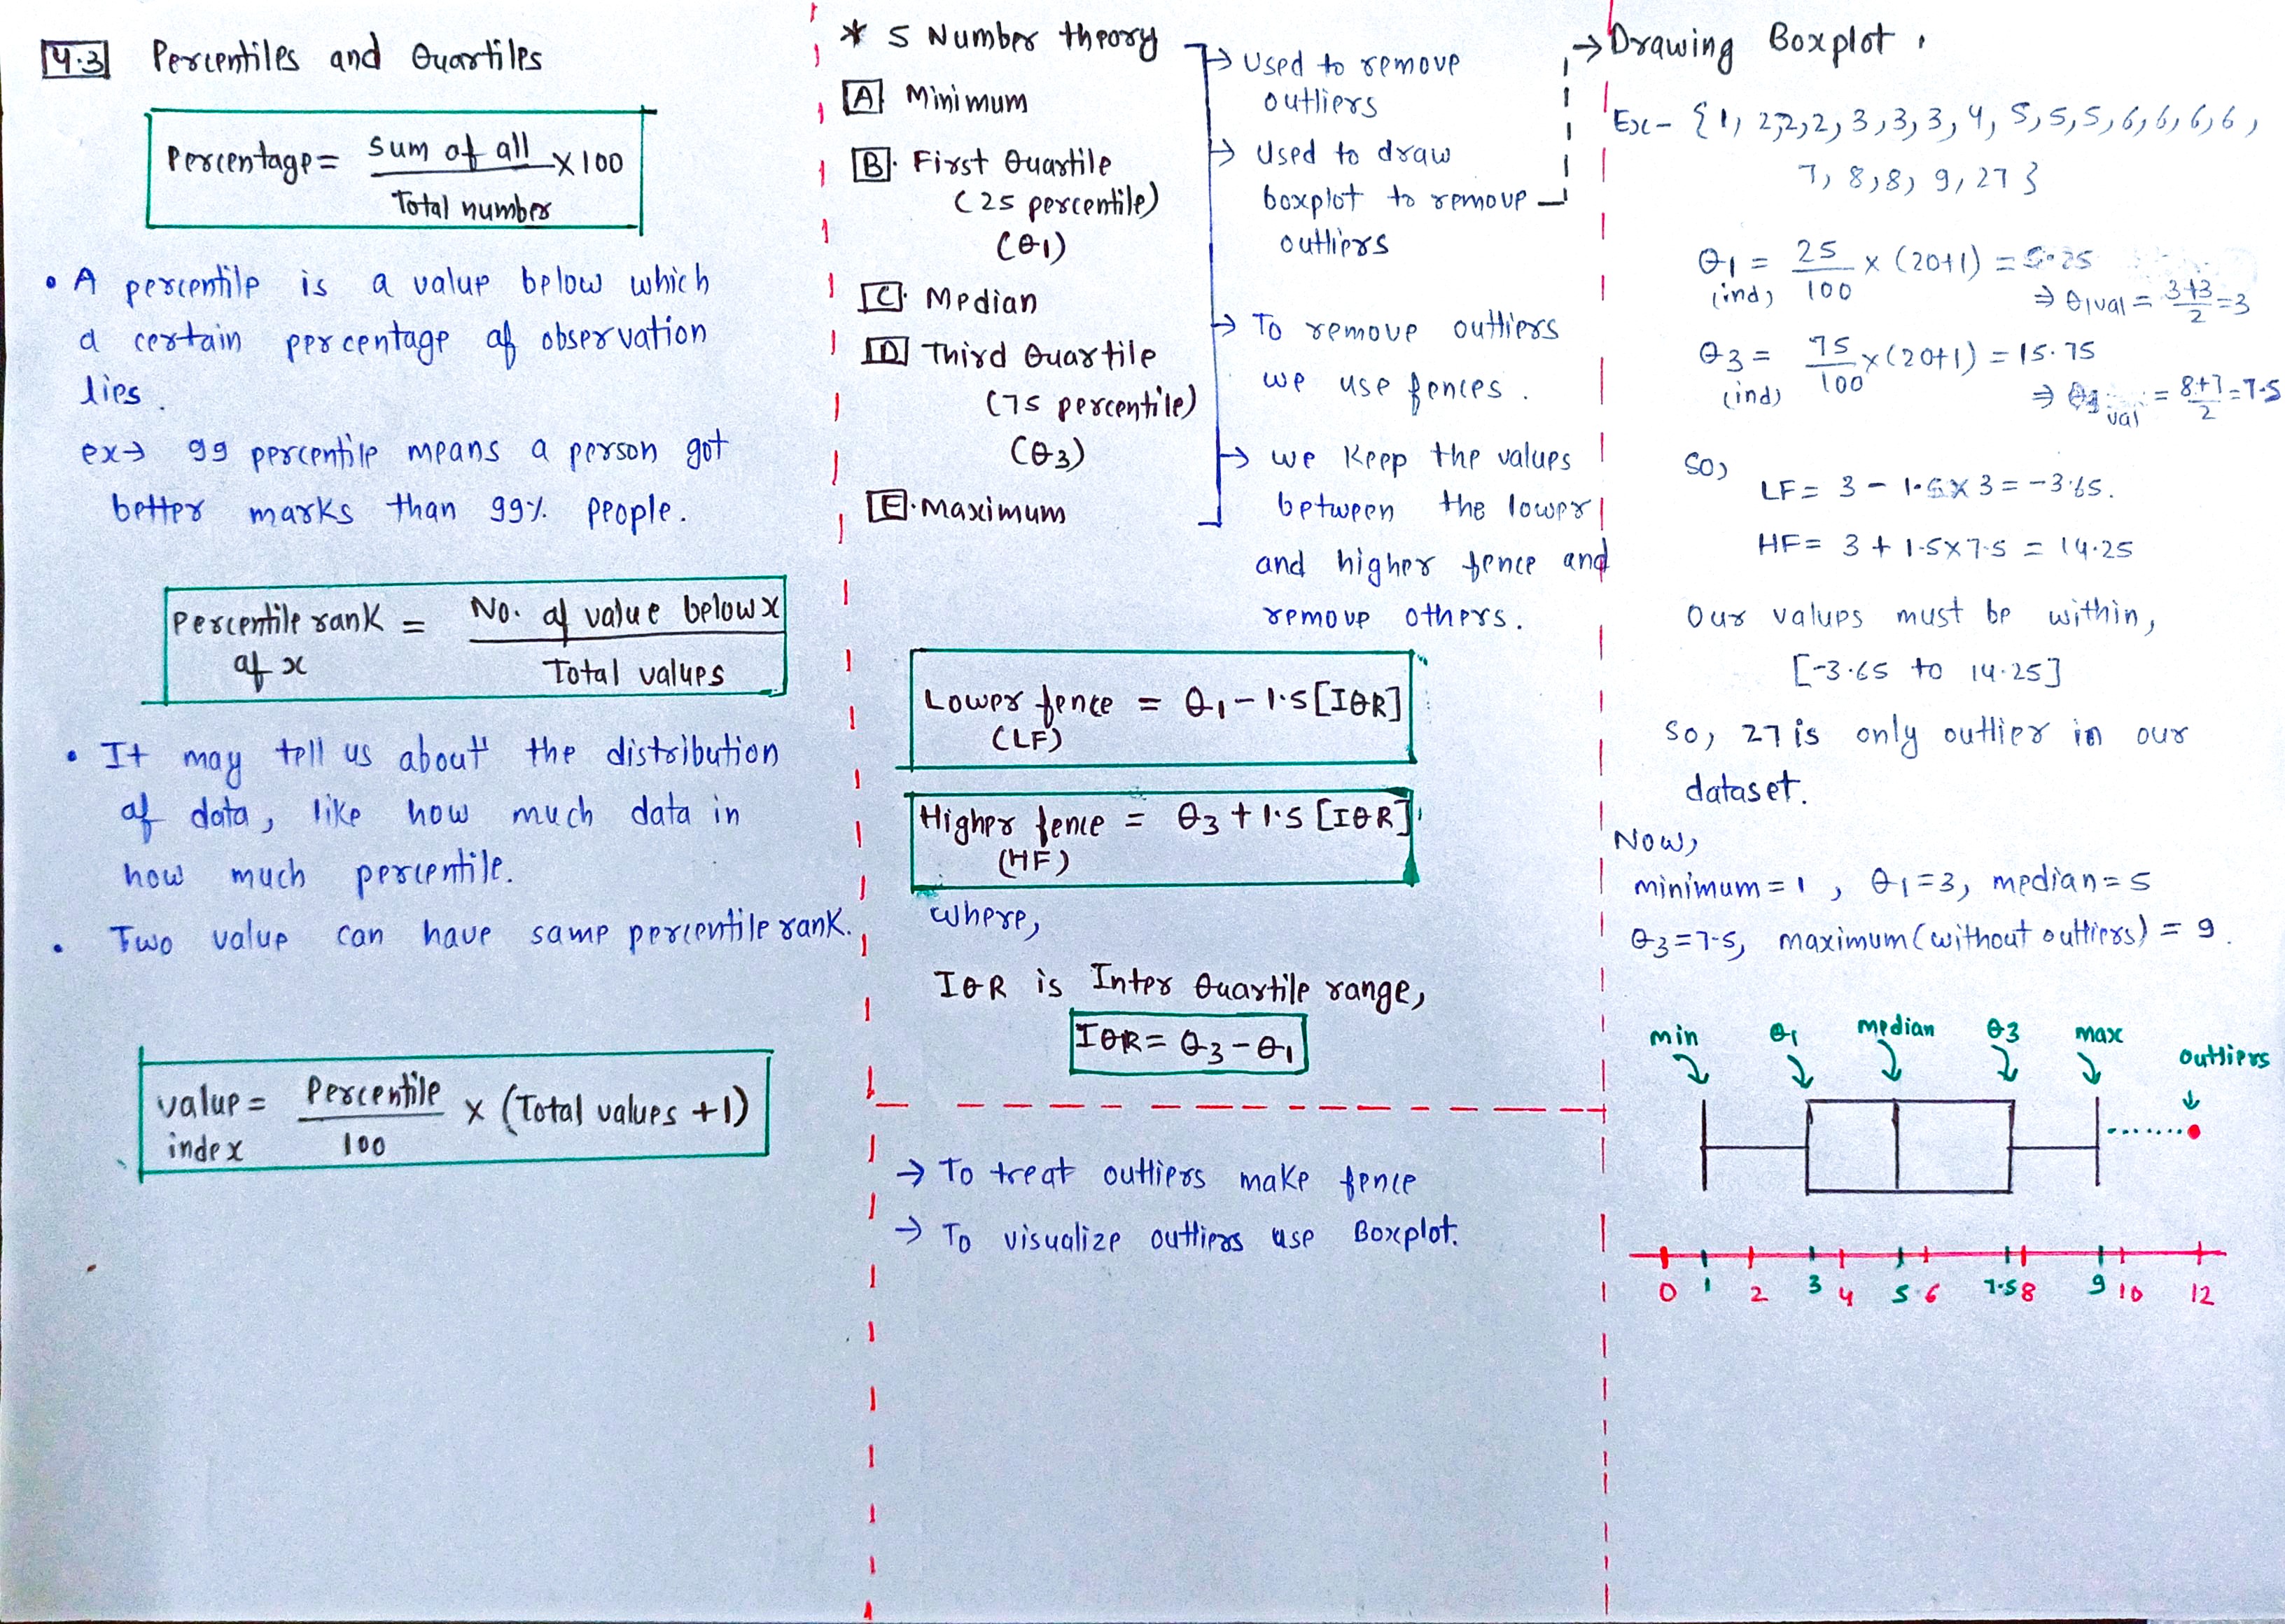 4.3 Percentiles and Quartiles
Percentage = Sum of all / Total number × 100
• A percentile is a value below which
a certain percentage of observation
lies.
ex→ 99 percentile means a person got
better marks than 99% people.
Percentile rank of x = No. of value below x / Total values
• It may tell us about the distribution
of data, like how much data in
how much percentile.
• Two value can have same percentile rank.
value index = Percentile / 100 × (Total values +1)
* 5 Number theory
A Minimum
B. First Quartile
(25 percentile)
(Q1)
C. Median
D Third Quartile
(75 percentile)
(Q3)
E. Maximum
→ Used to remove
outliers
→ Used to draw
boxplot to remove
outliers
→ To remove outliers
we use fences.
→ we keep the values
between the lower
and higher fence and
remove others.
Lower fence = Q1 - 1.5[IQR]
(LF)
Higher fence = Q3 + 1.5[IQR]
(HF)
where,
IQR is Inter Quartile range,
IQR = Q3 - Q1
→ To treat outliers make fence
→ To visualize outliers use Boxplot.
→ Drawing Boxplot.
Ex- {1, 2,2,2,2, 3,3,3, 4, 5,5,5,6,6,6,6,
7, 8,8, 9, 27}
Q1 (ind) = 25/100 × (20+1) = 5.25
⇒ Q1val = 3+3/2 = 3
Q3 (ind) = 75/100 × (20+1) = 15.75
⇒ val = 8+7/2 = 7.5
So,
LF = 3 - 1.5×3 = -3.65.
HF = 3 + 1.5×7.5 = 14.25
Our values must be within,
[-3.65 to 14.25]
So, 27 is only outlier in our
dataset.
Now,
minimum = 1, Q1=3, median = 5
Q3=7.5, maximum (without outliers) = 9.
min Q1 median Q3 max outliers
0 1 2 3 4 5 6 7.5 8 9 10 12